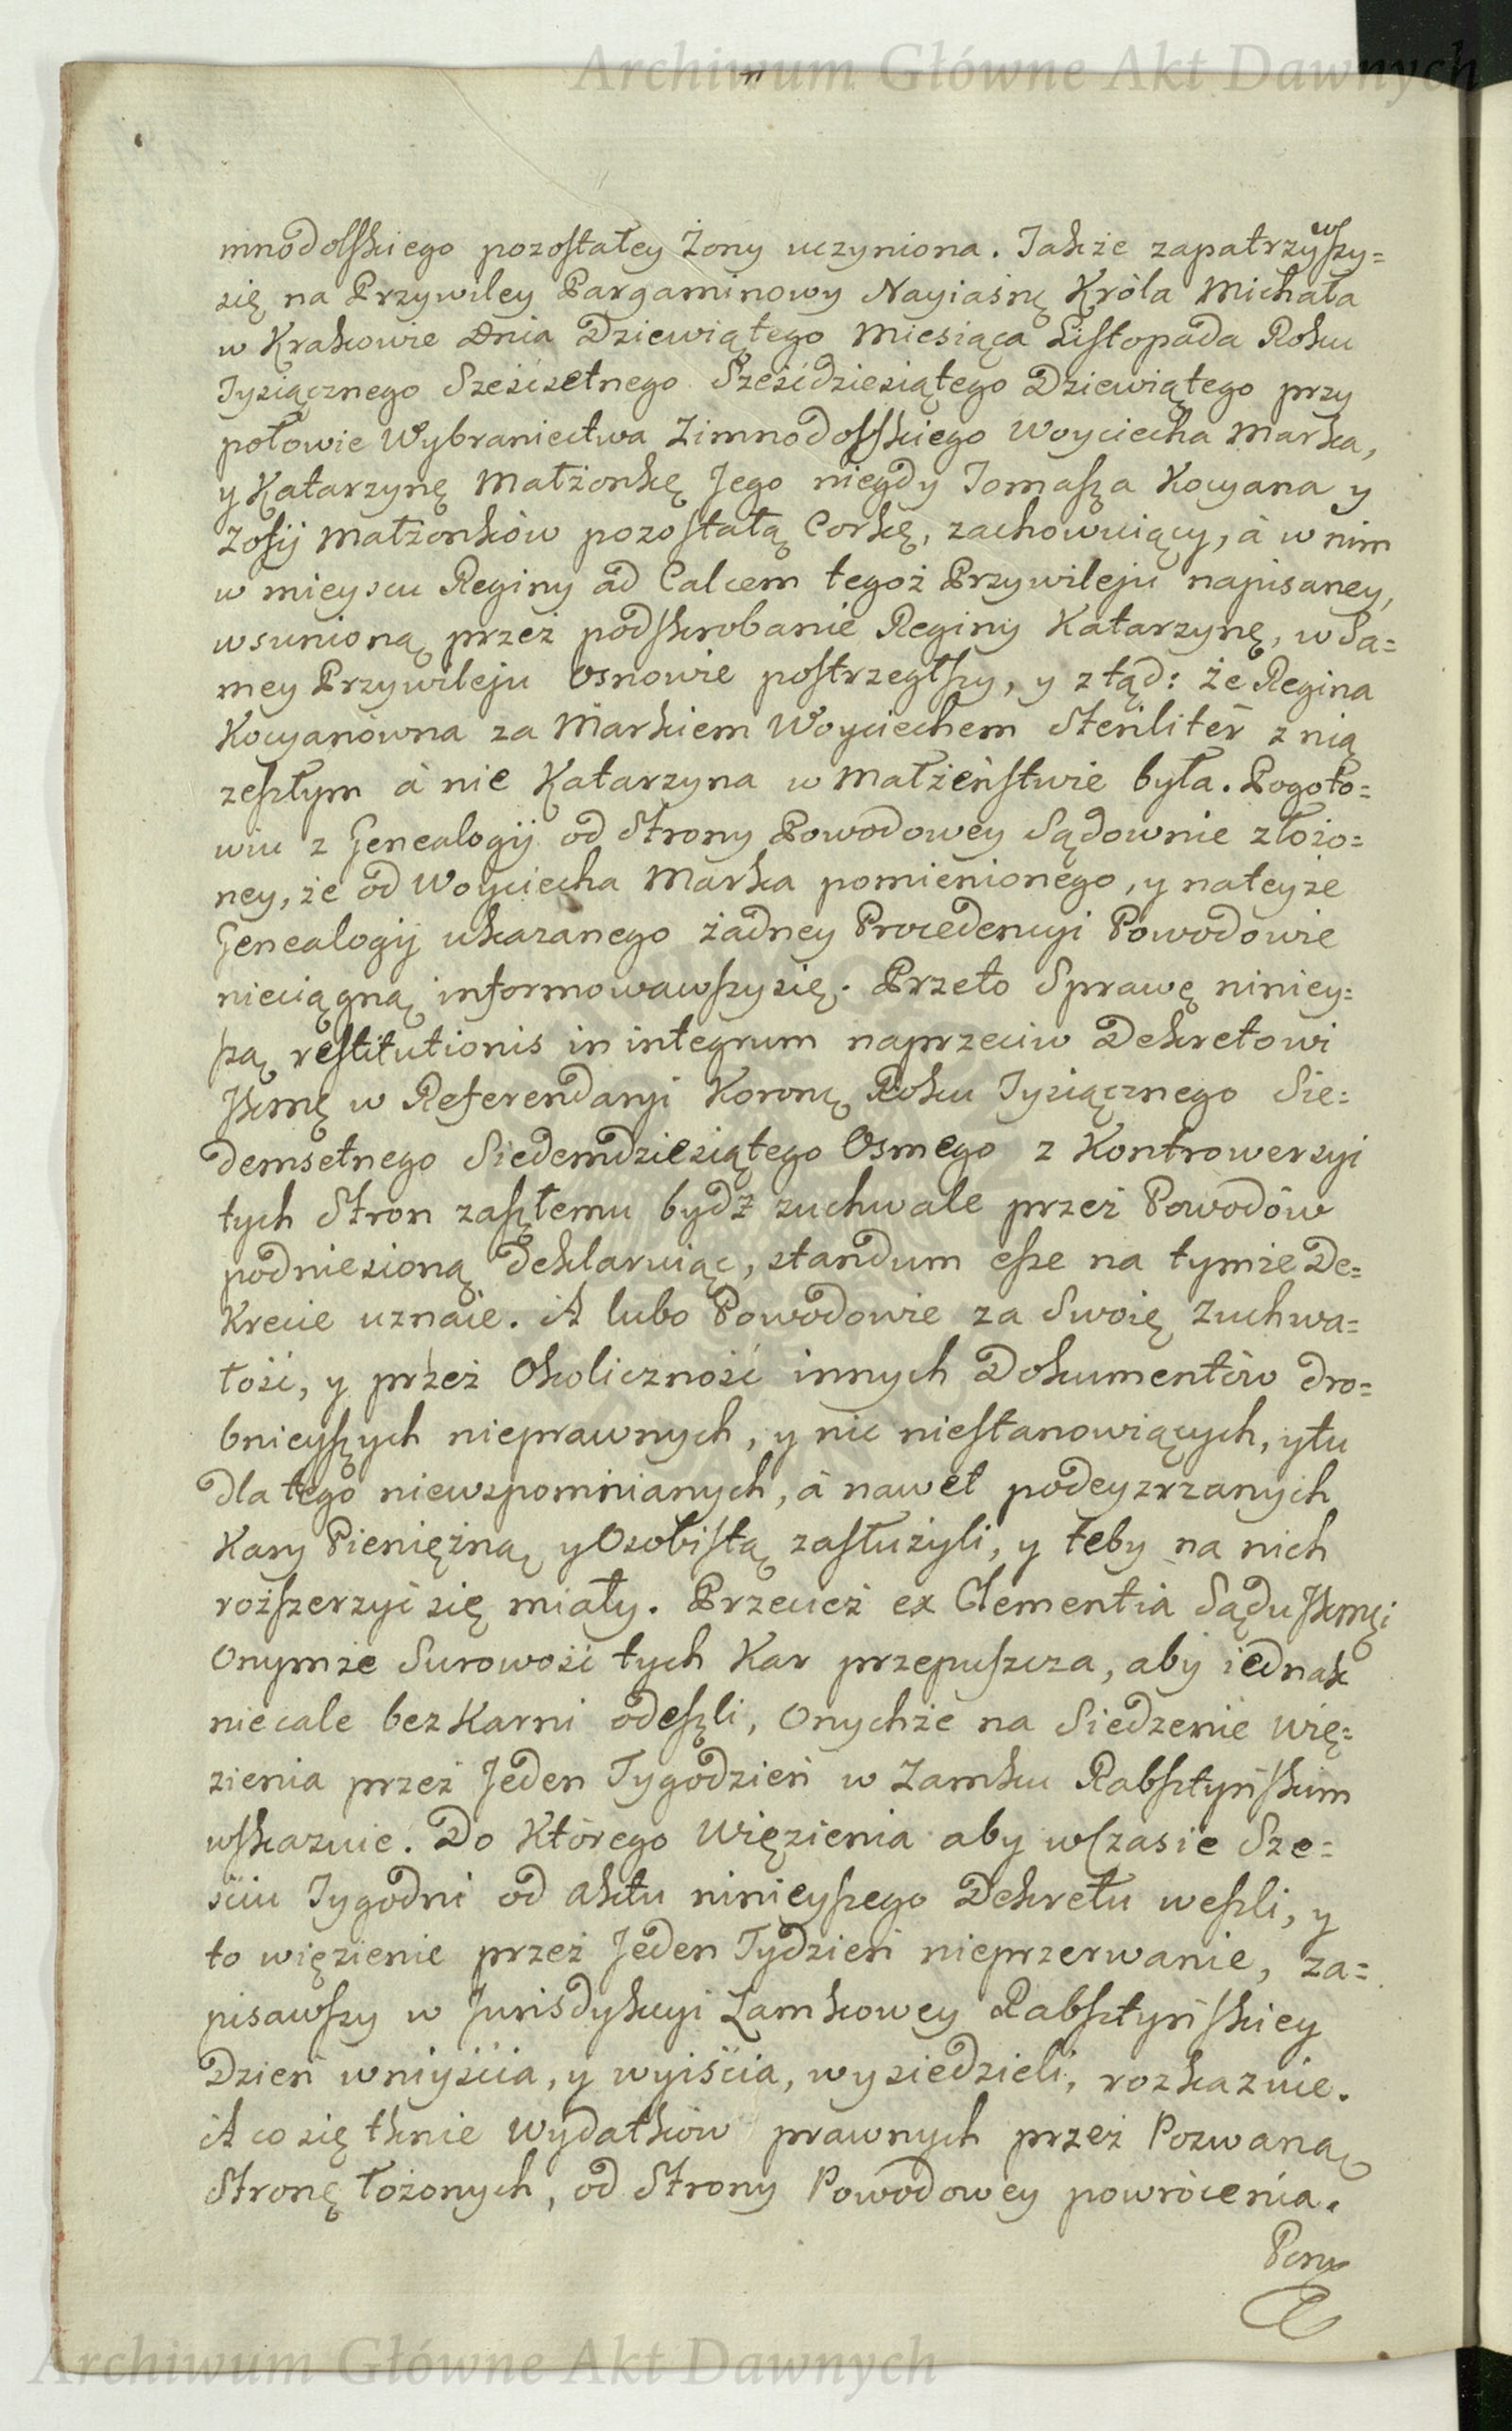 Archiwum Główne Akt Dawnych
mnodolskiego pozostałey Żony uczyniona. Jakże zapatrzywszy=
się na Przywiley Pargaminowy Nayiaśnę Króla Michała
w Krakowie Dnia Dziewiątego Miesiąca Listopada Roku
Tysiącznego Sześćsetnego Sześćdziesiątego Dziewiątego przy
połowie Wybraniectwa Zimnodolskiego Woyciecha Marka,
y Katarzynę Małżonkę Jego niegdy Tomasza Kocyana y
Zofij Małżonków pozostałą Corkę, zachowuiący, à w nim
w mieyscu Reginy ad Calcem tegoż Przywileju napisaney,
wsunioną przez podskrobanie Reginy Katarzynę, w Sa=
mey Przywileju Osnowie postrzegłszy, y ztąd: że Regina
Kocyanowna za Markiem Woyciechem Steriliter z nią
zeszłym à nie Katarzyna w Małżeństwie była. Pogoto=
wiu z Genealogij od Strony Powodowey Sądownie złożo=
ney, że od Woyciecha Marka pomienionego, y nateyże
Genealogij ukazanego żadney Procedencyi Powodowie
nieciągną informowawszysię. Przeto Sprawę niniey=
szą restitutionis in integrum naprzeciw Dekretowi
Jkmę w Referendaryi Koronę Roku Tysiącznego Sie=
demsetnego Siedemdziesiątego Osmego z Kontrowersyi
tych Stron zaszłemu bydź zuchwale przez Powodów
podniesioną deklaruiąc, standum esse na tymże De=
krecie uznaie. A lubo Powodowie za Swoię Zuchwa=
łość, y przez Okoliczność innych Dokumentów dro=
bnieyszych nieprawnych, y nic niestanowiących, ytu
dla tego niewspomnianych, à nawet podeyzrzanych
Kary Pieniężną y Osobistą zasłużyli, y teby na nich
rozszerzyć się miały. Przecież ex Clementia Sądu Jkmęi
Onymże Surowość tych Kar przepuszcza, aby iednak
niecale bezkarni odeszli, Onychże na Siedzenie wię=
zienia przez Jeden Tygodzień w Zamku Rabsztyńskim
wskazuie. Do Którego Więzienia aby wCzasie Sze=
ściu Tygodni od aktu ninieyszego Dekretu weszli, y
to więzienie przez Jeden Tydzień nieprzerwanie, za=
pisawszy w Jurisdykcyi Zamkowey Rabsztyńskiey
Dzień wniyścia, y wyiścia, wysiedzieli, rozkazuie.
A co się tknie Wydatków prawnych przez Pozwaną
Stronę łożonych, od Strony Powodowey powrócenia.
Archiwum Główne Akt Dawnych